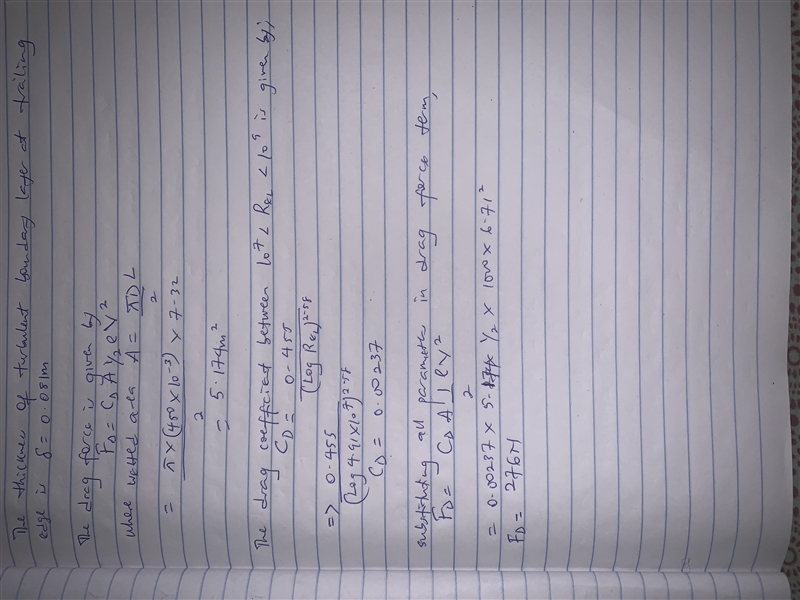 The thicknes of turbulent boundary layer at trailing
edge is δ = 0.081m
The drag force is given by
F_D = C_D A 1/2 ρV²
where wetted area A = πDL/2
= π×(450×10⁻³)×7.32/2
= 5.174m²
The drag coefficient between 10⁷ < Re_L < 10⁹ is given by;
C_D = 0.455/(Log Re_L)^2.58
=> 0.455/(Log 4.91×10⁷)^2.58
C_D = 0.00237
substituting all parameter in drag force term,
F_D = C_D A 1/2 ρV²
= 0.00237 × 5.174 × 1/2 × 1000 × 6.71²
F_D = 276N